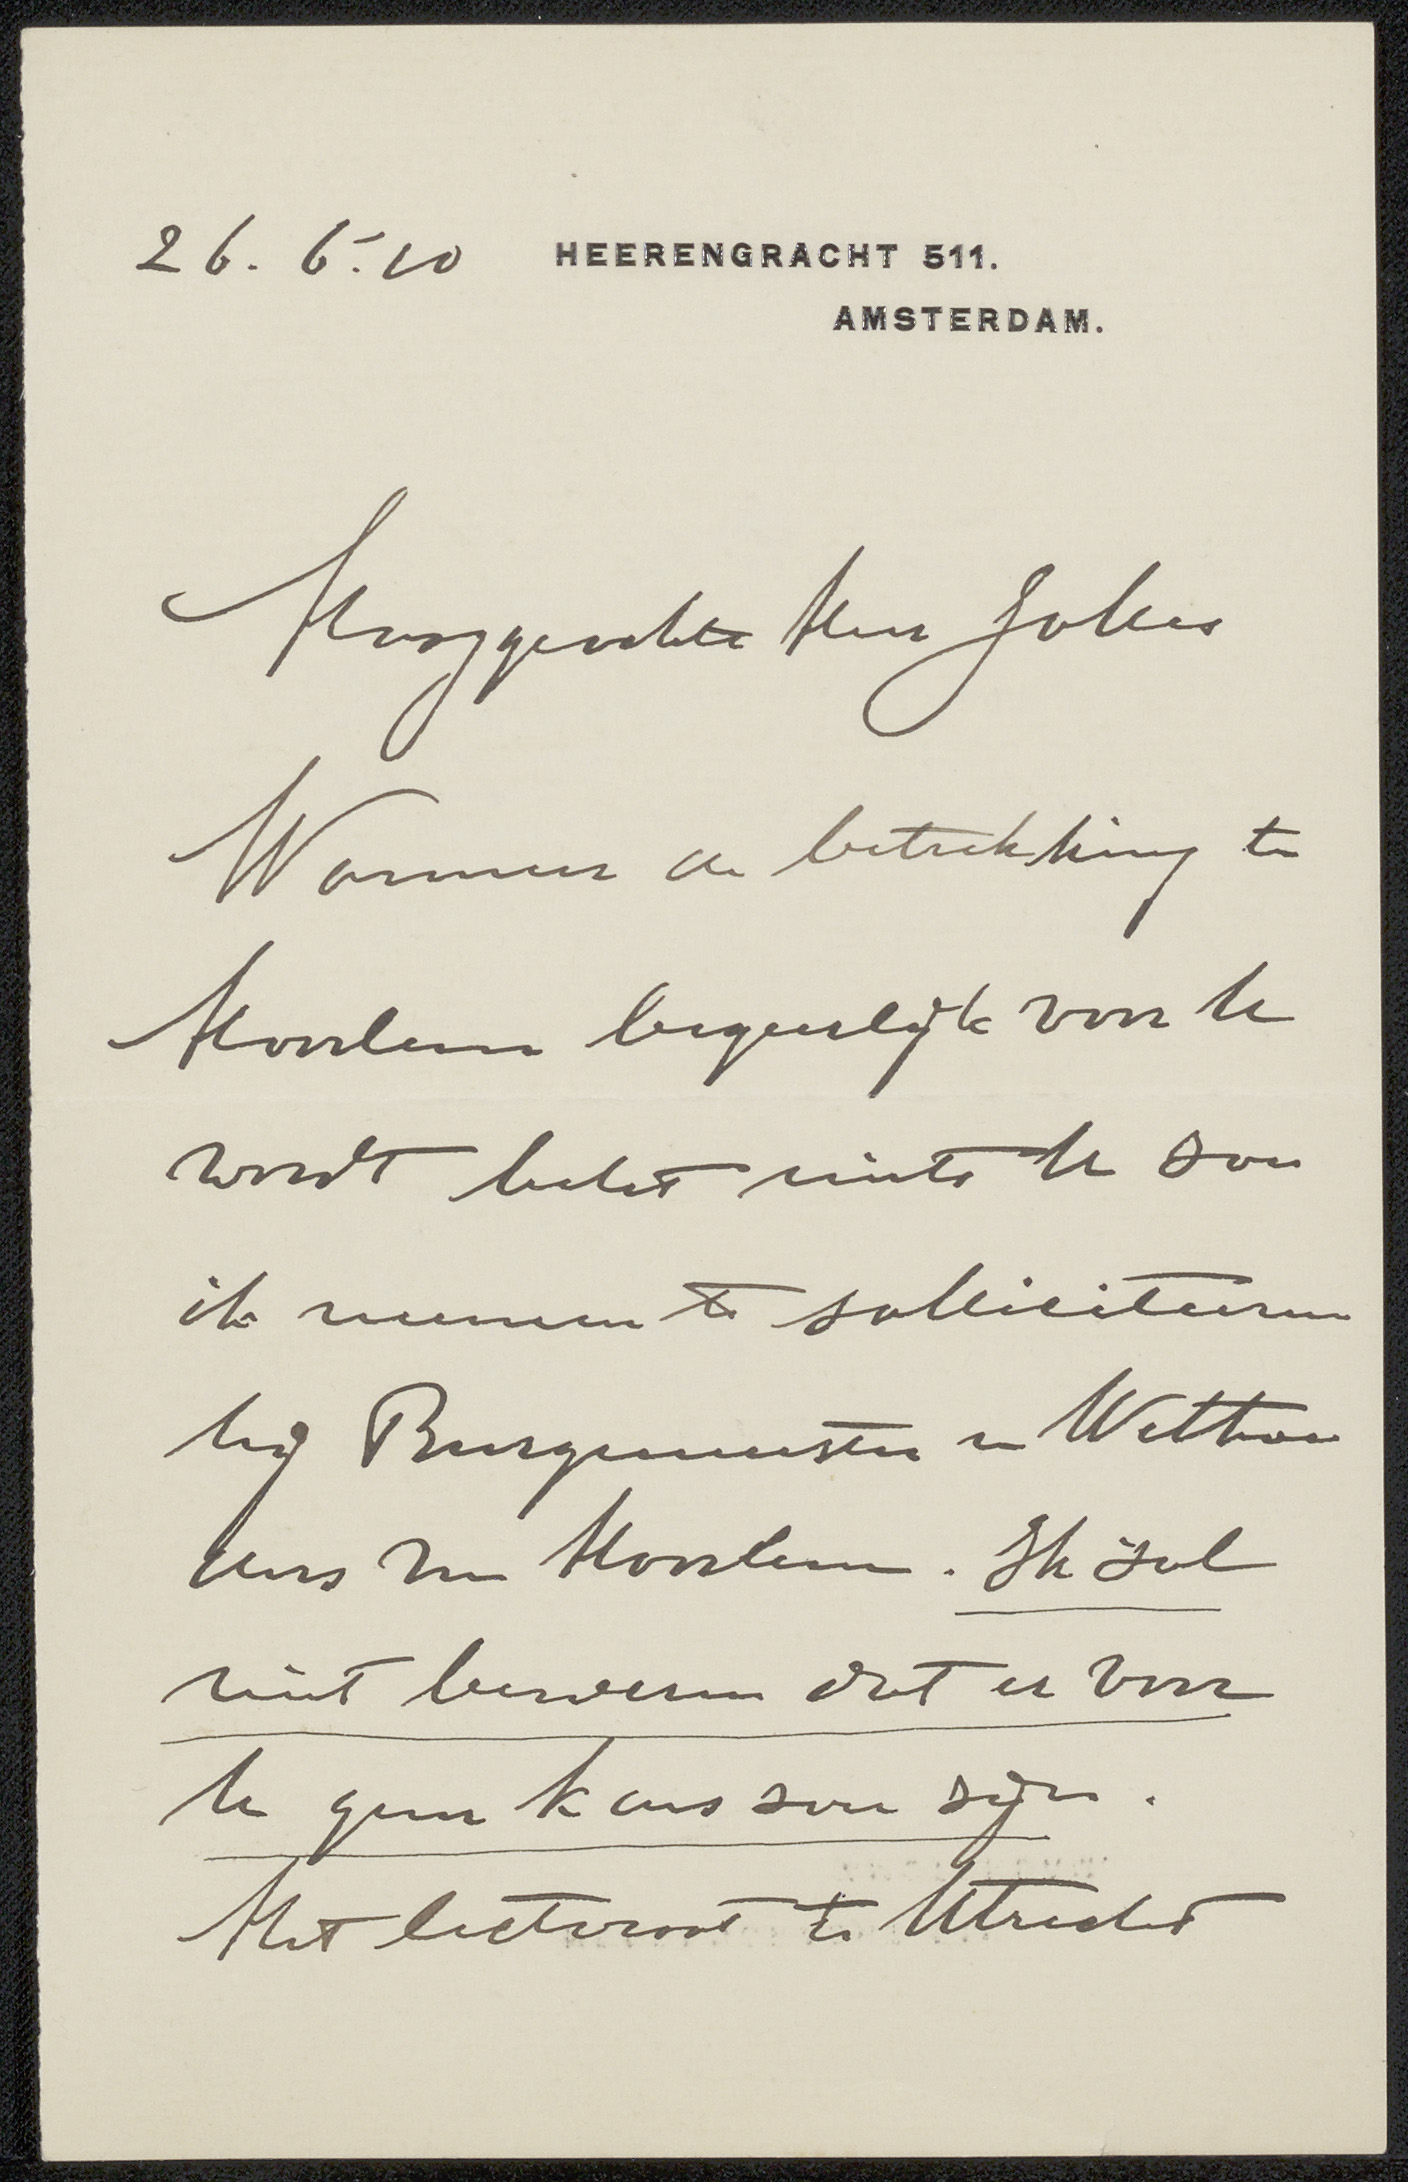 26. 6.'10 HEERENGRACHT 511.
AMSTERDAM.
Hooggeachte Heer
Wanneer de betrekking te
Haarlem begeerlijk voor U
wordt belet niets U zou
ik meenen te solliciteeren
bij Burgemeester en Wethou
ders van Haarlem. Ik zal
niet beweren dat er voor
U geen kans zou zijn.
Het lectoraat te Utrecht